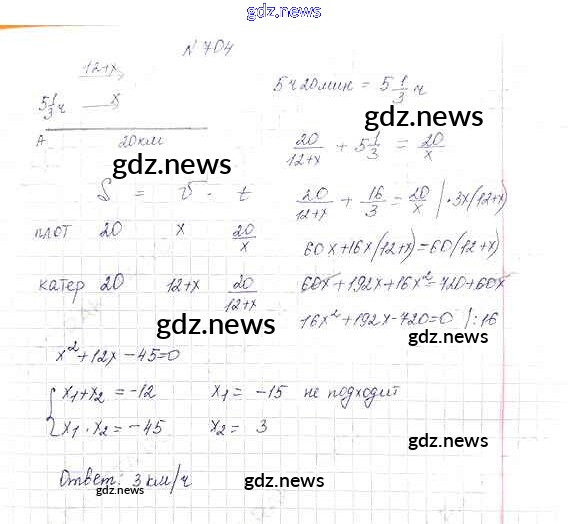 gdz.news
N 704
12+x
5 1/3 ч x
A 20км
5ч20мин = 5 1/3 ч
gdz.news
20/(12+x) + 5 1/3 = 20/x
gdz.news
S = v · t
20/(12+x) + 16/3 = 20/x | · 3x(12+x)
плот 20 x 20/x
60x+16x(12+x)=60(12+x)
катер 20 12+x 20/(12+x)
60x+192x+16x²=720+60x
gdz.news
16x²+192x-720=0 /:16
gdz.news
x²+12x-45=0
x₁+x₂ = -12 x₁ = -15 не подходит
x₁·x₂ = -45 x₂ = 3
gdz.news
Ответ: 3 км/ч
gdz.news
gdz.news